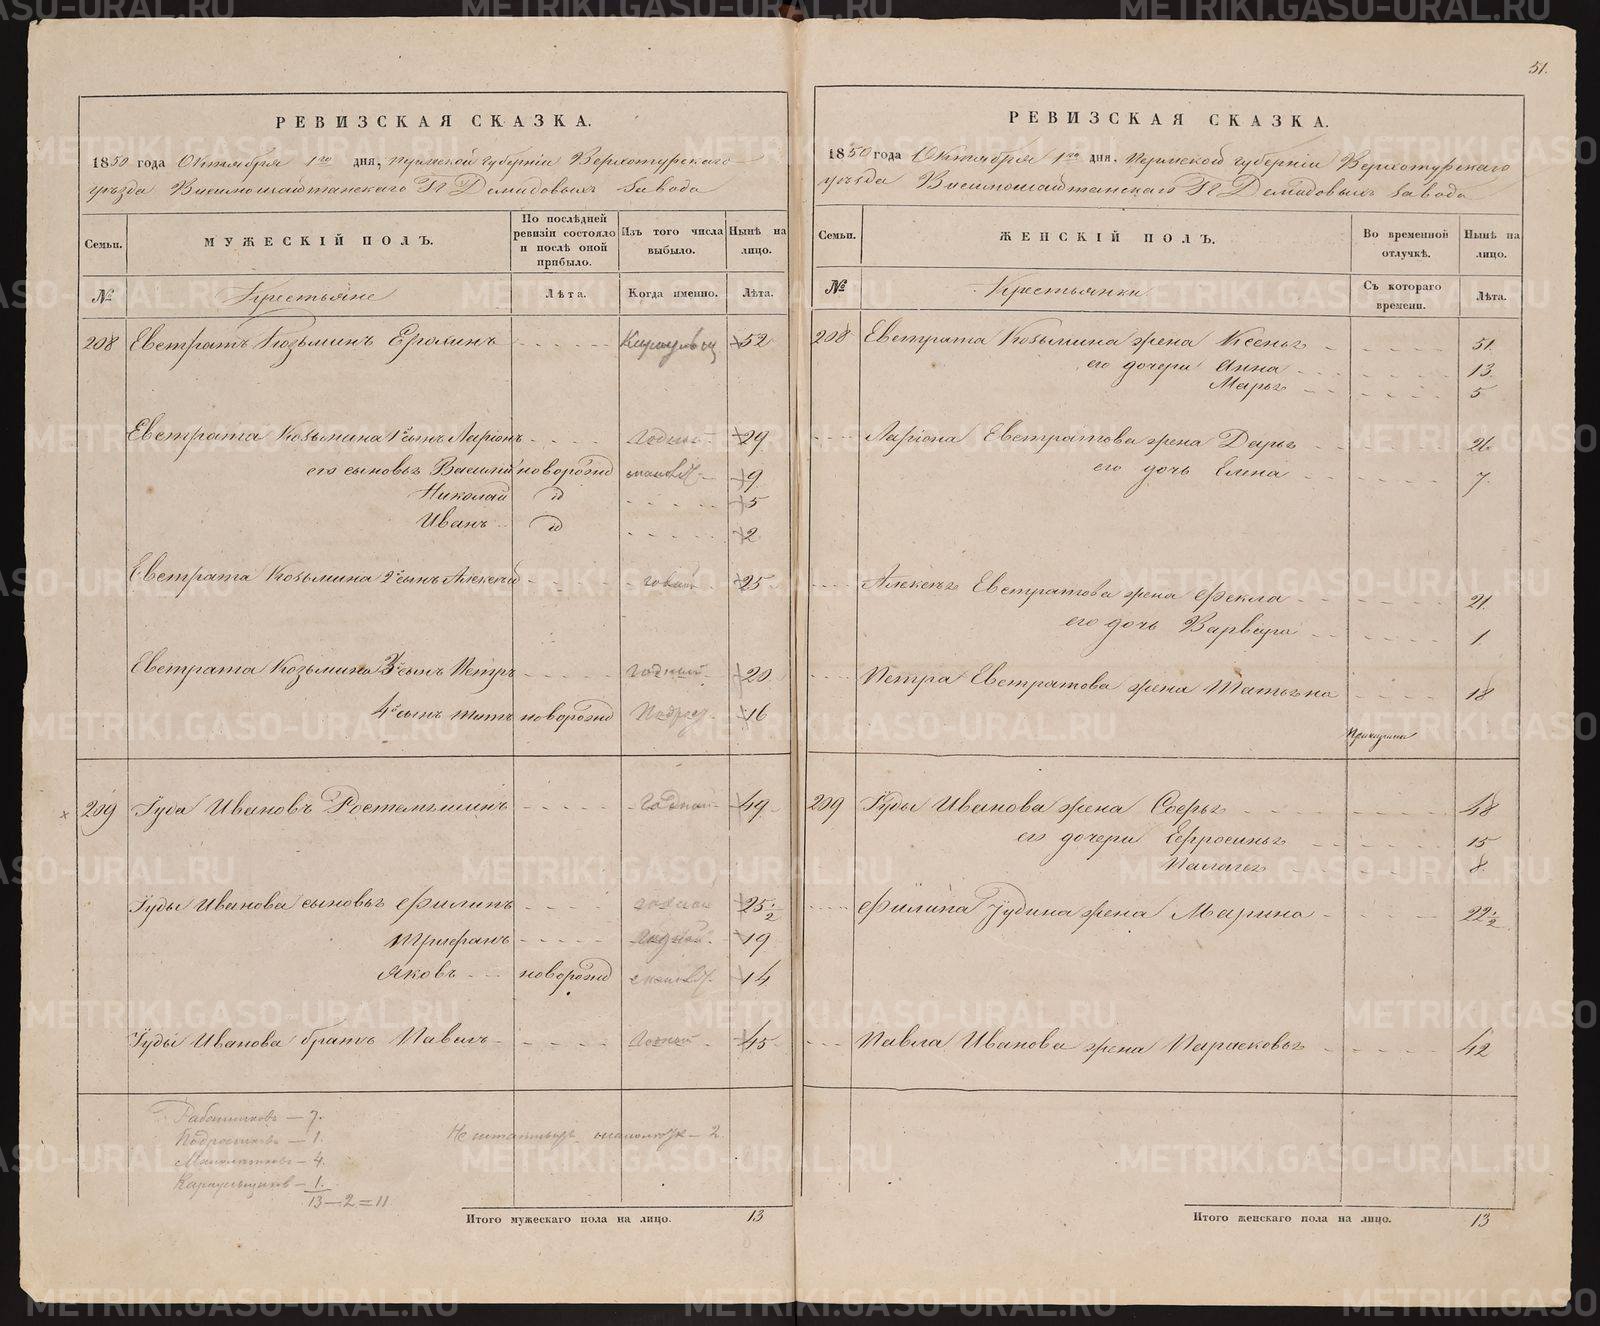 51.
РЕВИЗСКАЯ СКАЗКА.
1850 года Октября 1го дня, Пермской губерніи Верхотурскаго
уѣзда Висимошайтанскаго Гг. Демидовыхъ завода
Семьи.
МУЖЕСКІЙ ПОЛЪ.
По послѣдней ревизіи состояло и послѣ оной прибыло.
Изъ того числа выбыло.
Нынѣ на лицо.
№
Крестьяне
Лѣта.
Когда именно.
Лѣта.
208 Евстратъ Козьминъ 52
Евстрата Козьмина 1й сынъ Ларіонъ годный 29
его сыновья Василій новорожд 9
Николай 5
Иванъ 2
Евстрата Козьмина 2й сынъ Алексѣй 25
Евстрата Козьмина 3й сынъ Петръ годный 20
4й сынъ новорожд 16
209 Іуда Ивановъ годный 49
Іуды Иванова сыновья Филипъ 25 1/2
Трифанъ 19
Яковъ новорожд 14
Іуды Иванова братъ Павелъ 45
Работниковъ — 7.
Подростковъ — 1.
Малолѣтковъ — 4.
Караульщиков — 1.
13 — 2 = 11
— 2.
Итого мужескаго пола на лицо. 13
РЕВИЗСКАЯ СКАЗКА.
1850 года Октября 1го дня, Пермской губерніи Верхотурскаго
уѣзда Висимошайтанскаго Гг. Демидовыхъ завода
Семьи.
ЖЕНСКІЙ ПОЛЪ.
Во временной отлучкѣ.
Нынѣ на лицо.
№
Крестьянки
Съ котораго времени.
Лѣта.
208 Евстрата Козьмина жена Ксенья 51.
его дочери Анна 13.
Марья 5
Ларіона Евстратова жена Дарья 26
его дочь Елена 7.
Алексѣя Евстратова жена Фекла 21.
его дочь Варвара 1.
Петра Евстратова жена Татьяна 18
209 Іуды Иванова жена Софья 48
его дочери Ефросинья 15
Палагья 8
Филипа Іудина жена Марина 22 1/2
Павла Иванова жена Парасковья 42
Итого женскаго пола на лицо. 13
METRIKI.GASO-URAL.RU